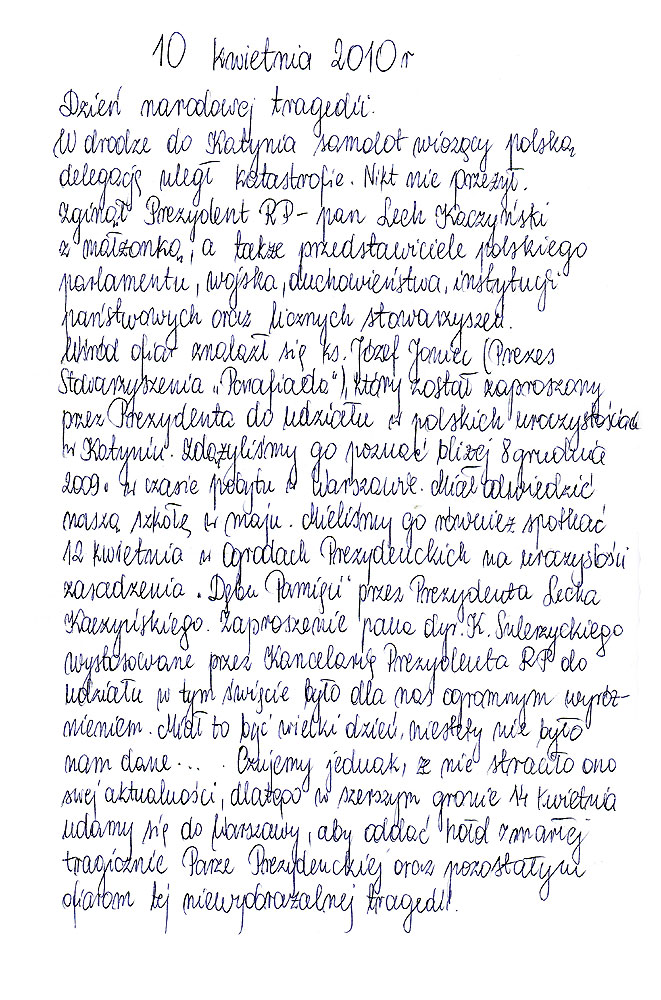 10 kwietnia 2010r
Dzień narodowej tragedii.
W drodze do Katynia samolot wiozący polską
delegację uległ katastrofie. Nikt nie przeżył.
Zginął Prezydent RP - pan Lech Kaczyński
z małżonką, a także przedstawiciele polskiego
parlamentu, wojska, duchowieństwa, instytucji
państwowych oraz licznych stowarzyszeń.
Wśród ofiar znalazł się ks. Józef Joniec (Prezes
Stowarzyszenia „Parafiada"), który został zaproszony
przez Prezydenta do udziału w polskich uroczystościach
w Katyniu. Zdążyliśmy go poznać bliżej 8 grudnia
2009r w czasie pobytu w Warszawie. Miał odwiedzić
naszą szkołę w maju. Mieliśmy go również spotkać
12 kwietnia w Ogrodach Prezydenckich na uroczystości
zasadzenia „Dębu Pamięci" przez Prezydenta Lecha
Kaczyńskiego. Zaproszenie pana dyr. K. Sulerzyckiego
wystosowane przez Kancelarię Prezydenta RP do
udziału w tym święcie było dla nas ogromnym wyróż-
nieniem. Miał to być wielki dzień, niestety nie było
nam dane... . Czujemy jednak, że nie straciło ono
swej aktualności, dlatego w szerszym gronie 14 kwietnia
udamy się do Warszawy, aby oddać hołd zmarłej
tragicznie Parze Prezydenckiej oraz pozostałym
ofiarom tej niewyobrażalnej tragedii.